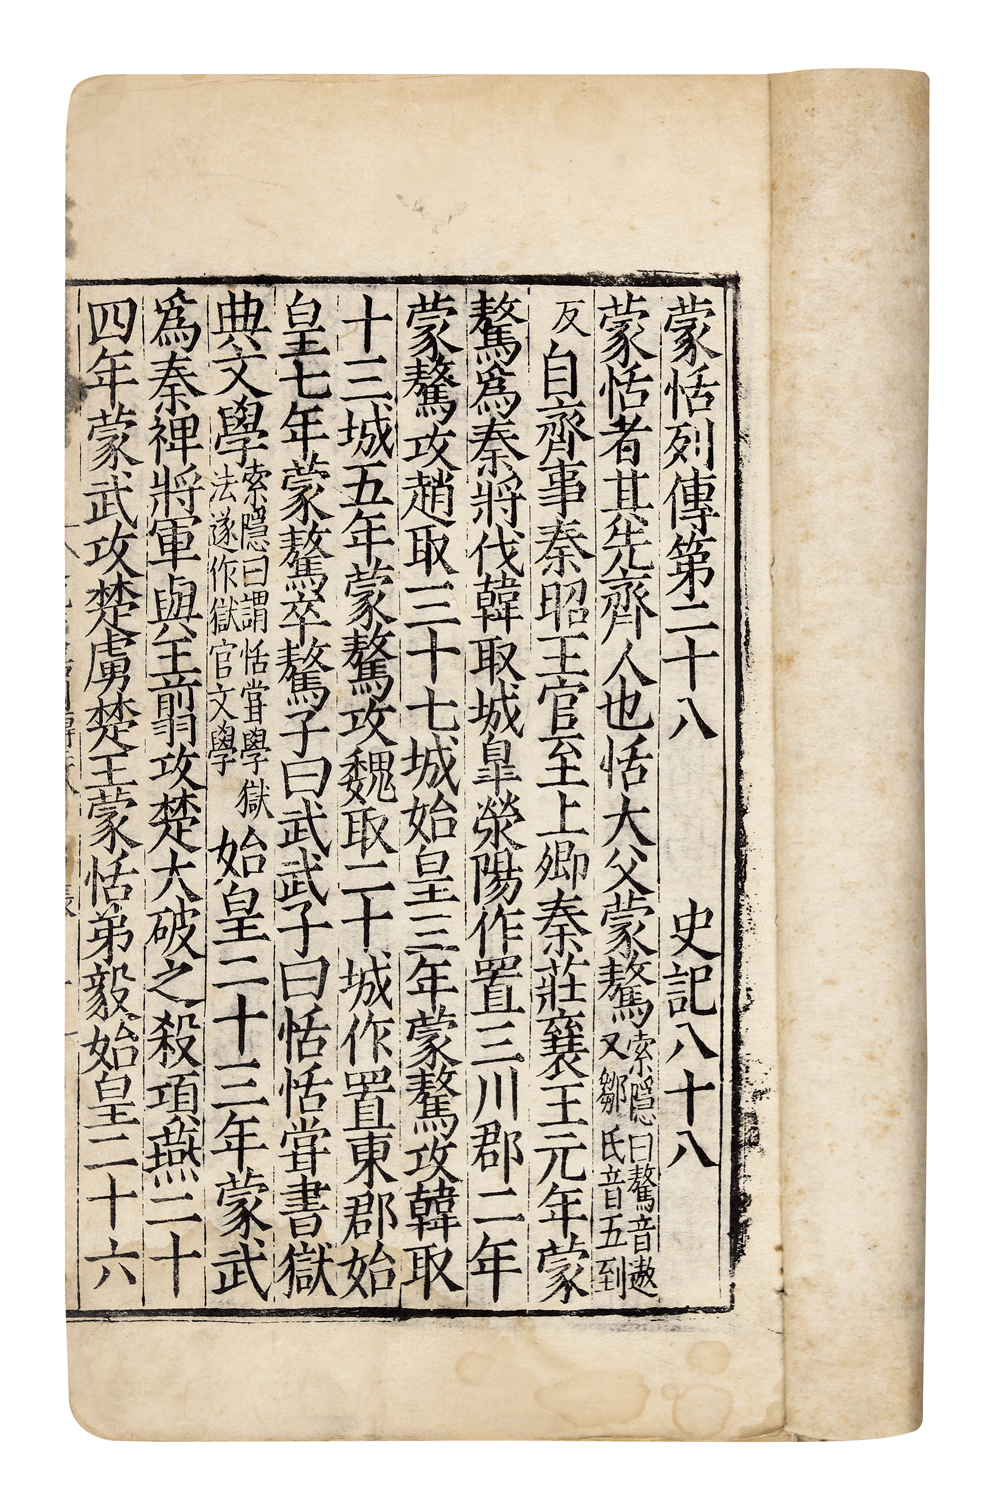 蒙恬列傳第二十八 史記八十八
蒙恬者其先齊人也恬大父蒙驁索隱曰驁音遨又鄒氏音五到
反自齊事秦昭王官至上卿秦莊襄王元年蒙
驁爲秦將伐韓取城皐滎陽作置三川郡二年
蒙驁攻趙取三十七城始皇三年蒙驁攻韓取
十三城五年蒙驁攻魏取二十城作置東郡始
皇七年蒙驁卒驁子曰武武子曰恬恬甞書獄
典文學索隱曰謂恬甞學獄法遂作獄官文學始皇二十三年蒙武
爲秦裨將軍與王翦攻楚大破之殺項燕二十
四年蒙武攻楚虜楚王蒙恬弟毅始皇二十六